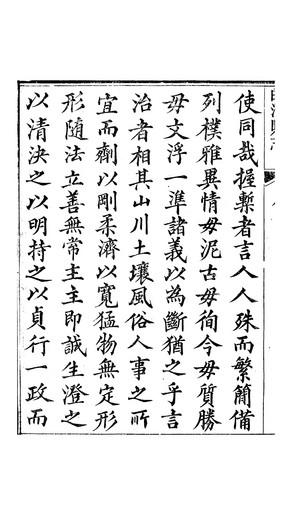 使同哉握槧者言人人殊而繁簡備
列樸雅異情毋泥古毋徇今毋質勝
毋文浮一準諸義以為斷猶之乎言
治者相其山川土壤風俗人事之所
宜而劑以剛柔濟以寬猛物無定形
形隨法立善無常主主即誠生澄之
以清決之以明持之以貞行一政而